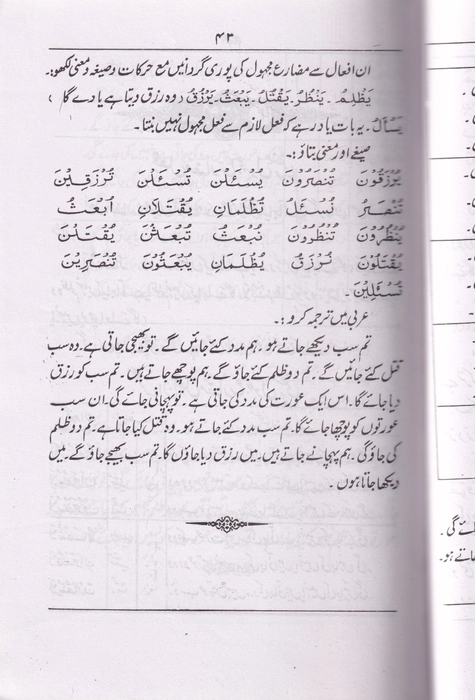 ۴۳
ان افعال سے مضارع مجہول کی پوری گردانیں مع حرکات و صیغہ و معنی لکھو:۔
یَظْلِمُ۔ یَنْظُرُ۔ یَقْتُلُ۔ یَبْعَثُ۔ یَرْزُقُ (وہ رزق دیتا ہے یا دے گا)
یَسْأَلُ۔ یہ بات یاد رہے کہ فعل لازم سے فعل مجہول نہیں بنتا۔
صیغے اور معنی بتاؤ:۔
یُرْزَقُوْنَ تُنْصَرُوْنَ یُسْئَلْنَ تُسْئَلْنَ تُرْزَقِیْنَ
تُنْصَرُ نُسْئَلُ تُظْلَمَانِ یُقْتَلَانِ اُبْعَثُ
یُنْظَرُوْنَ تُنْظَرُوْنَ نُبْعَثُ تُبْعَثْنَ یُقْتَلْنَ
یُقْتَلُوْنَ نُرْزَقُ یُظْلَمَانِ یُبْعَثُوْنَ تُنْصَرِیْنَ
تُسْئَلِیْنَ۔
عربی میں ترجمہ کرو:۔
تم سب دیکھے جاتے ہو۔ ہم مدد کئے جائیں گے۔ تو بھیجی جاتی ہے۔ وہ سب
قتل کئے جائیں گے۔ تم دو ظلم کئے جاؤ گے۔ ہم پوچھے جاتے ہیں۔ تم سب کو رزق
دیا جائے گا۔ اس ایک عورت کی مدد کی جاتی ہے۔ تو پہچانی جائے گی۔ ان سب
عورتوں کو پوچھا جائے گا۔ تم سب مدد کئے جاتے ہو۔ وہ قتل کیا جاتا ہے۔ تم دو ظلم
کی جاؤ گی۔ ہم پہچانے جاتے ہیں۔ میں رزق دیا جاؤں گا۔ تم سب بھیجے جاؤ گے۔ میں
دیکھا جاتا ہوں۔
ئے گی۔
جاتے ہو۔